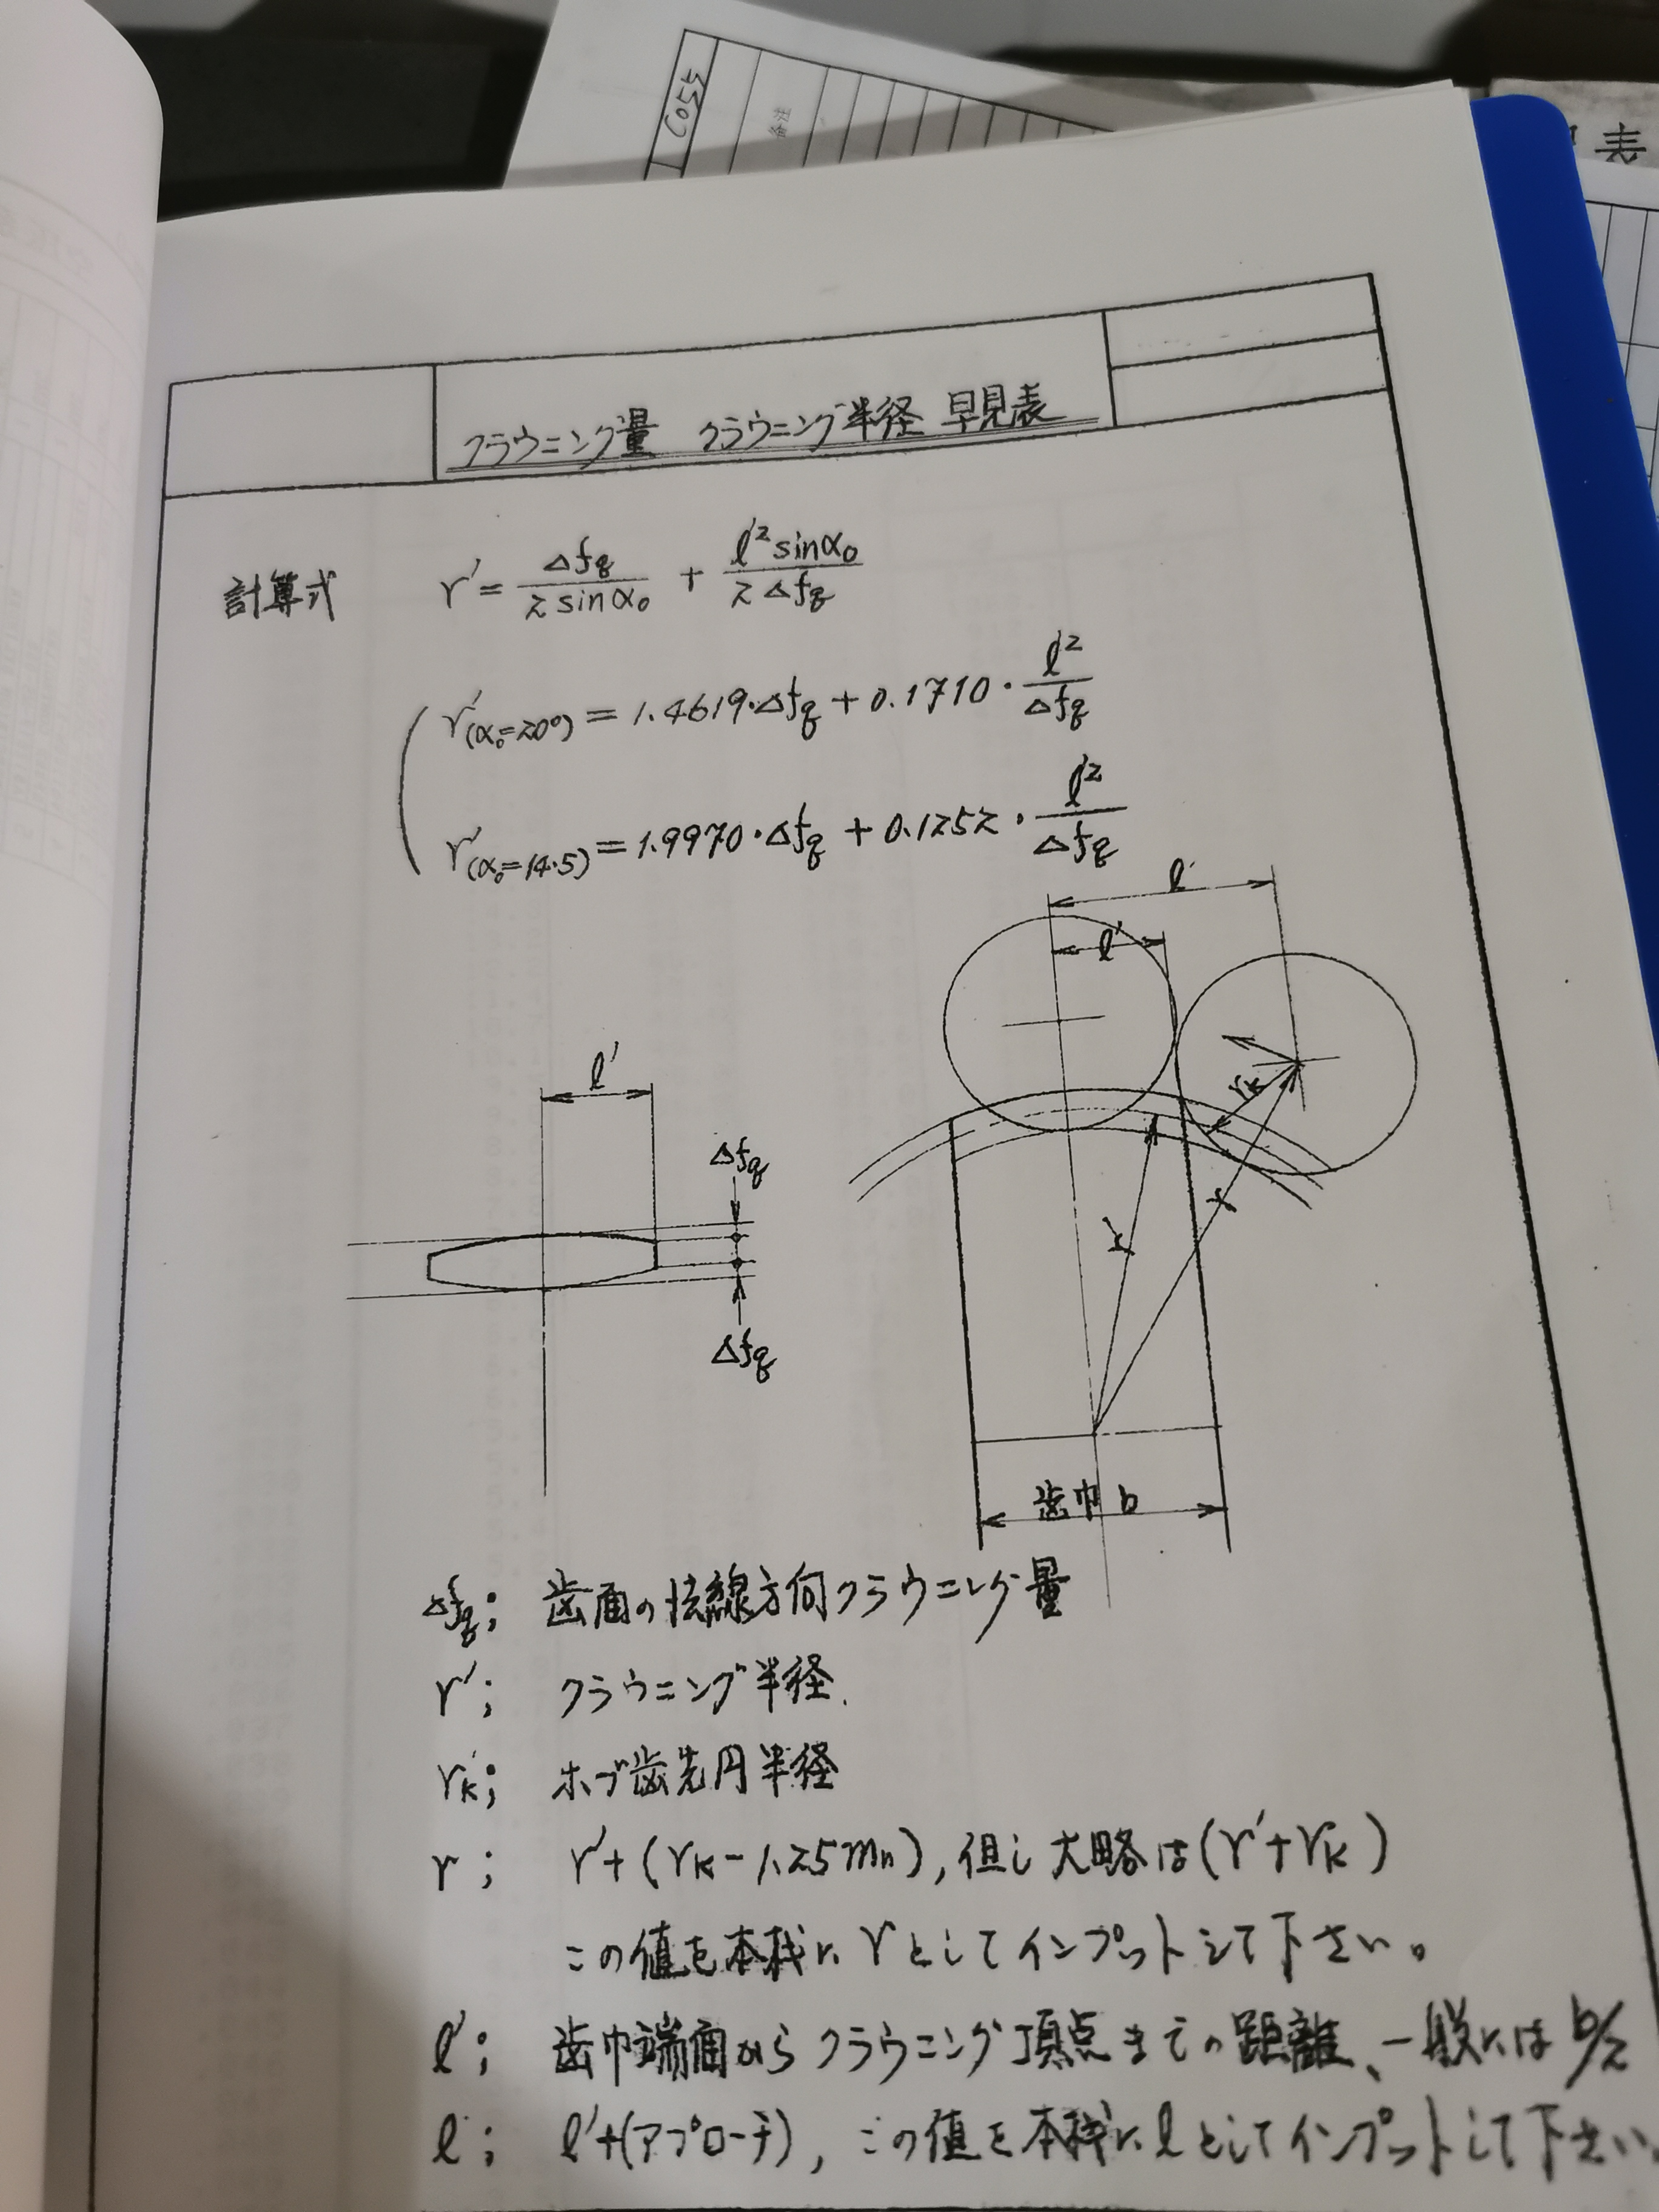 C055
备注
表
クラウニング量 クラウニング半径 早見表
計算式 r' = Δfg / 2 sinα₀ + l'² sinα₀ / 2 Δfg
r'(α₀=20°) = 1.4619・Δfg + 0.1710・l'² / Δfg
r'(α₀=14.5) = 1.9970・Δfg + 0.1252・l'² / Δfg
l
l'
l'
rk
Δfg
r'
r
Δfg
歯巾 b
Δfg; 歯面の法線方向クラウニング量
r'; クラウニング半径.
rk; ホブ歯先円半径
r; r'+(rk-1.25mn),但し大略は(r'+rk)
この値を本機に r としてインプットして下さい。
l'; 歯巾端面から クラウニング頂点までの距離、一般には b/2
l; l'+(アプローチ), この値を本機に l としてインプットして下さい。